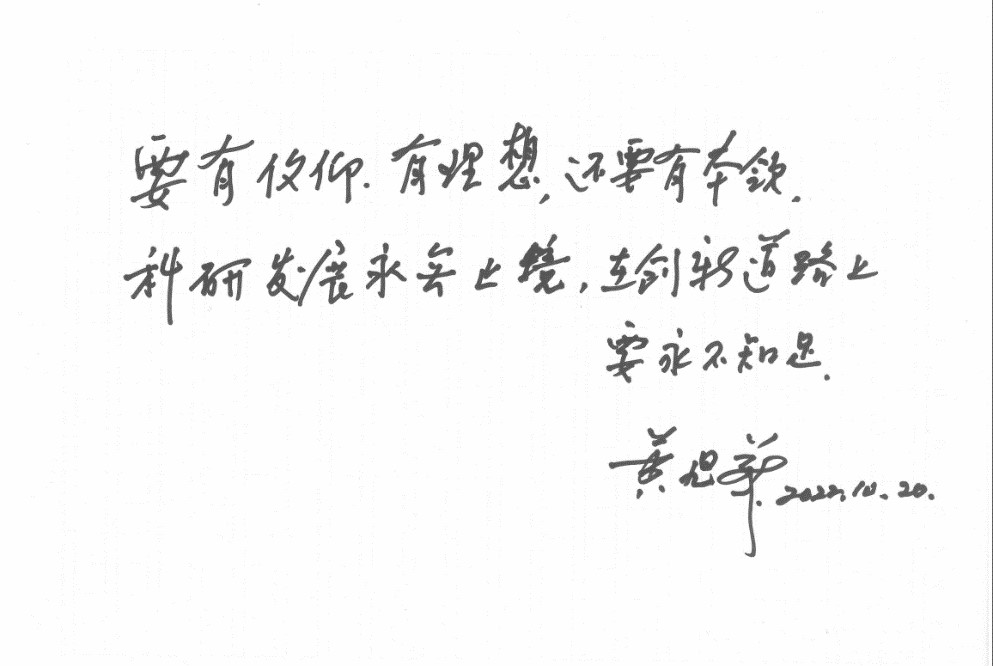 要有信仰.有理想,还要有本领.
科研发展永无止境,在创新道路上
要永不知足.
黄旭华.2022.10.20.